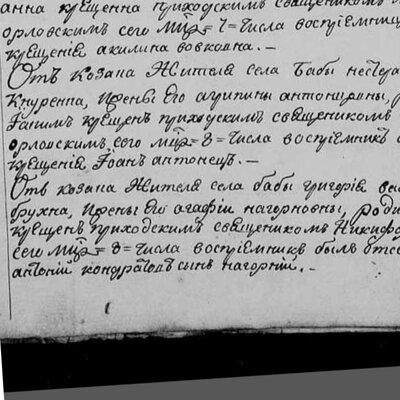 анна крещенна приходскимъ священикомъ
орловскимъ сего мця = 7 = числа воспріемниц
крещенія акилина вовковна. —
Отъ козака Жителя села Бабы нестера
Кнуренка, Жрены Его агрипины антоновны,
крещенъ приходскимъ священикомъ
орловскимъ, сего мця = 8 = числа воспріемникъ
крещенія Іоанъ антонецъ. —
Отъ козака Жителя села бабы григорія
брухна, Жены Его агафіи нагорновны, роди
крещенъ приходскимъ священикомъ Никифо
сего мця = 8 = числа воспріемникъ былъ
антоній кондратовъ сынъ нагорній. —